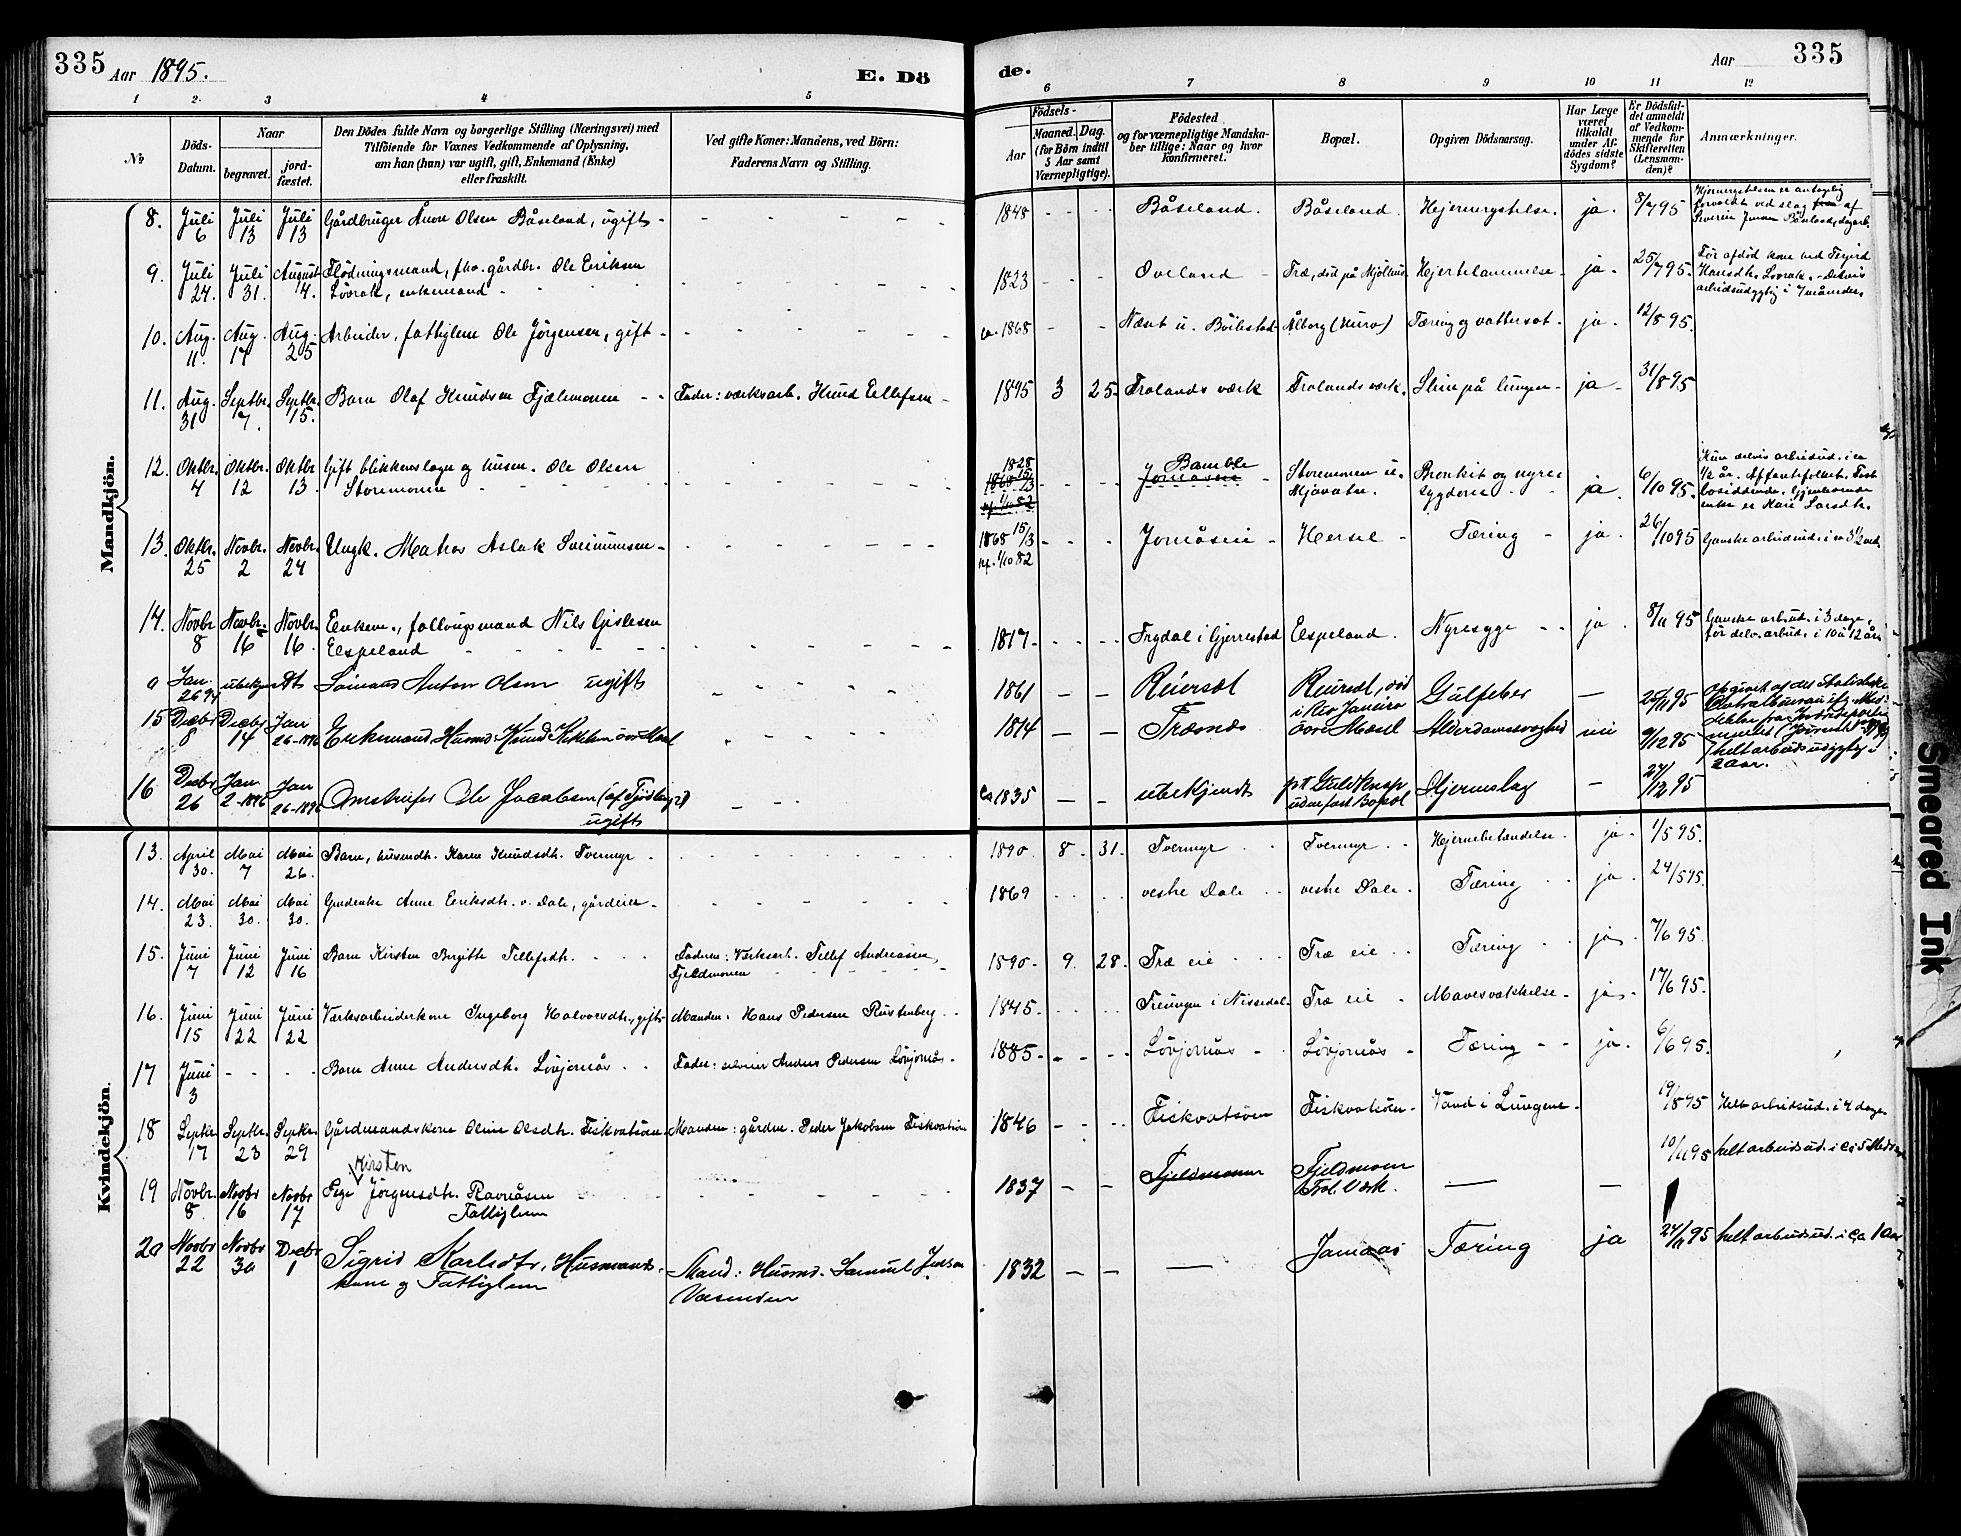 335 Aar 1895.
E. Dö
de.
Aar 335
1 2 3 4 5 6 7 8 9 10 11 12
№
Döds-
Datum.
Naar
begravet.
jord-
fæstet.
Den Dödes fulde Navn og borgerlige Stilling (Næringsvei) med
Tilföiende for Voxnes Vedkommende af Oplysning,
om han (hun) var ugift, gift, Enkemand (Enke)
eller fraskilt.
Ved gifte Koner: Mandens, ved Börn:
Faderens Navn og Stilling.
Födsels-
Aar
Maaned. Dag.
(for Börn indtil
5 Aar samt
Værnepligtige).
Födested
og for værnepligtige Mandska-
ber tillige: Naar og hvor
konfirmeret.
Bopæl.
Opgiven Dödsaarsag.
Har Læge
været
tilkaldt
under Af-
dödes sidste
Sygdom?
Er Dödsfal-
det anmeldt
af Vedkom-
mende for
Skifteretten
(Lensman-
den)?
Anmærkninger.
Mandkjön.
8. Juli 6 Juli 13 Juli 13 Gårdbruger Olsen Båseland, ugift 1848 Båseland. Båseland. Hjernerystelse. ja. 8/7 95 Hjernerystelsen er antagelig
forvoldt ved slag af
Severin Jensen Båseland, dagarb.
9. Juli 24. Juli 31. August 4. Flödningsmand, fhv. gårdbr. Ole Eriksen
Lövrak, enkemand 1823 Oveland Træ, död på Mjölhus Hjertelammelse ja. 25/7 95. Før afdöd kone ved
Hansdtr. Lövrak. - Delvis
arbeidsudygtig i 7 måneder.
10. Aug. 11. Aug. 17 Aug. 25 Arbeider, fattiglem Ole Jörgensen, gift ca. 1868 Næset u. Böilestad Ålborg Tæring og vattersot. ja. 12/8 95.
11. Aug. 31 Septbr. 7. Septbr. 15. Barn Olaf Knudsen Fjælmonen Fader: værksarb. Knud Ellefsen 1895 3 25. Frolands værk Frolands værk. Slim på lungen ja 31/8 95
12. Oktbr. 4 Oktbr. 12 Oktbr. 13. Gift blikkenslager og husm. Ole Olsen
Storemonen 1828 Bamble Storemonen u.
Mjavatn. Bronkit og nyre
sygdom ja. 6/10 95. Kun delvis arbeidsud. i ca
1/2 år.
enke er Kari Larsdtr.
13. Oktbr. 25 Novbr. 2 Novbr. 24 Ungk. Matros Aslak Salmunsen 1868 15/3
1/10 82 Jomåsen Hersel Tæring ja. 26/10 95 Ganske arbeidsud. i ca 3 1/2 md.
14. Novbr. 8 Novbr. 16 Novbr. 16. Enkem., follougsmand Nils Gjslesen
Elspeland 1817 Trydal i Gjerrestad Elspeland. Nyresyge ja. 8/11 95 Ganske arbud. i 3 dage,
før delv. arbud. i 10 à 12 år.
a Jan. 26 94 ubekjendt Sömand Anton Olsen ugift 1861 Reiersöl Reiersöl, död
i Rio Janeiro Gulfeber 25/11 95 opgivet af det Statistiske
Centralbureau
15 Decbr 8 Decbr 14 Jan 26-1896 Enkemand Husmd. Knud övre Mæsel 1814 Trævnæs övre Mæsel Alderdomssvaghed nei 9/12 95 helt arbeidsudygtig i
2 aar.
16 Decbr 26 Jan 2-1896 Jan 26-1896 Omstreifer Ole Jacobsen
ugift ca 1835 ubekjendt pt Guldknap
uden fast Bopæl Hjerneslag 27/12 95
Kvindekjön.
13. April 30. Mai 7 Mai 26. Barn, husmdtr. Karen Knudsdtr. Tvermyr 1890. 8. 31. Tvermyr Tvermyr Hjernebetændelse. ja. 1/5 95.
14. Mai 23. Mai 30. Mai 30. Gaardenke Anne Eriksdtr. v. Dale, gårdeier 1869 vestre Dale vestre Dale. Tæring ja. 24/5 95.
15. Juni 7 Juni 12 Juni 16 Barn Kirsten Birgitte Tellefsdtr. Faderen: Værksarb. Tellef Andreasen
Fjeldmonen 1890. 9. 28. Træ eie Træ eie Tæring ja. 7/6 95.
16. Juni 15 Juni 22 Juni 22 Værksarbeiderkone Ingeborg Halvorsdtr., gift Manden: Hans Pedersen Rustenberg 1845. Treungen i Nissedal. Træ eie Mavesvækkelse ja. 17/6 95.
17 Juni 3 Barn Anne Andersdtr. Lövjomås Fader: selveier Anders Pedersen Lövjomås 1885 Lövjomås Lövjomås Tæring ja. 6/6 95.
18 Septbr. 17 Septbr. 23 Septbr. 29 Gårdmandskone Oline Olsdtr. Fiskvatsöen Manden: gårdm. Peder Jakobsen Fiskvatsöen 1846 Fiskvatsöen Fiskvatsöen Vand i Lungene 19/8 95 Helt arbeidsud. i 4 dage
19 Novbr. 8. Novbr 16 Novbr 17 Pige Kirsten Jörgensdtr. Ravnåsen
Fattiglem 1837 Fjeldmoen Fjeldmoen
Frol. Værk. 10/11 95 helt arbeidsud. i ca 5
20 Novbr 22 Novbr 30 Decbr 1 Sigrid Karlsdtr, Husmands-
kone og Fattiglem Mand: Husmd. Samuel
Vasenden 1832 Jomaas Tæring ja 24/11 95 helt arbeidsud. i ca 1 Aar
Smeared Ink